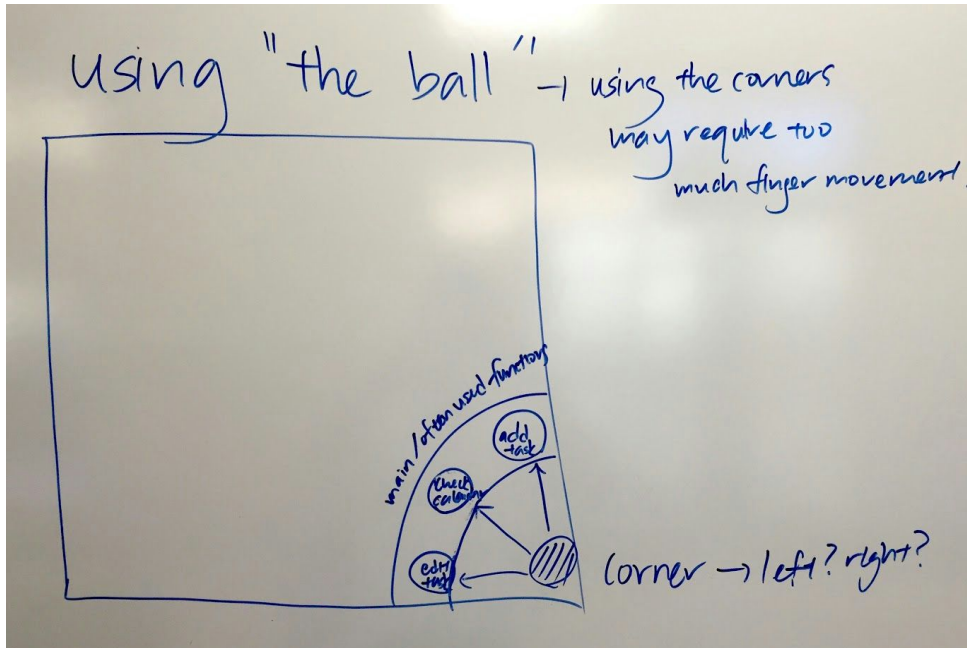 using "the ball" → using the corners
may require too
much finger movement.
main/often used functions
add
task
check
calendar
edit
task
corner → left? right?